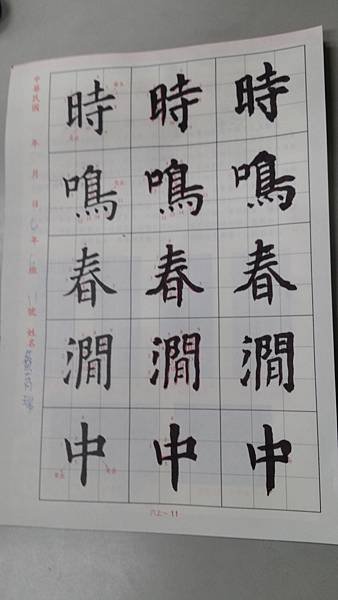 時鳴春澗中
時鳴春澗中
時鳴春澗中
中華民國 年 月 日 年 班 號 姓名
六上－11